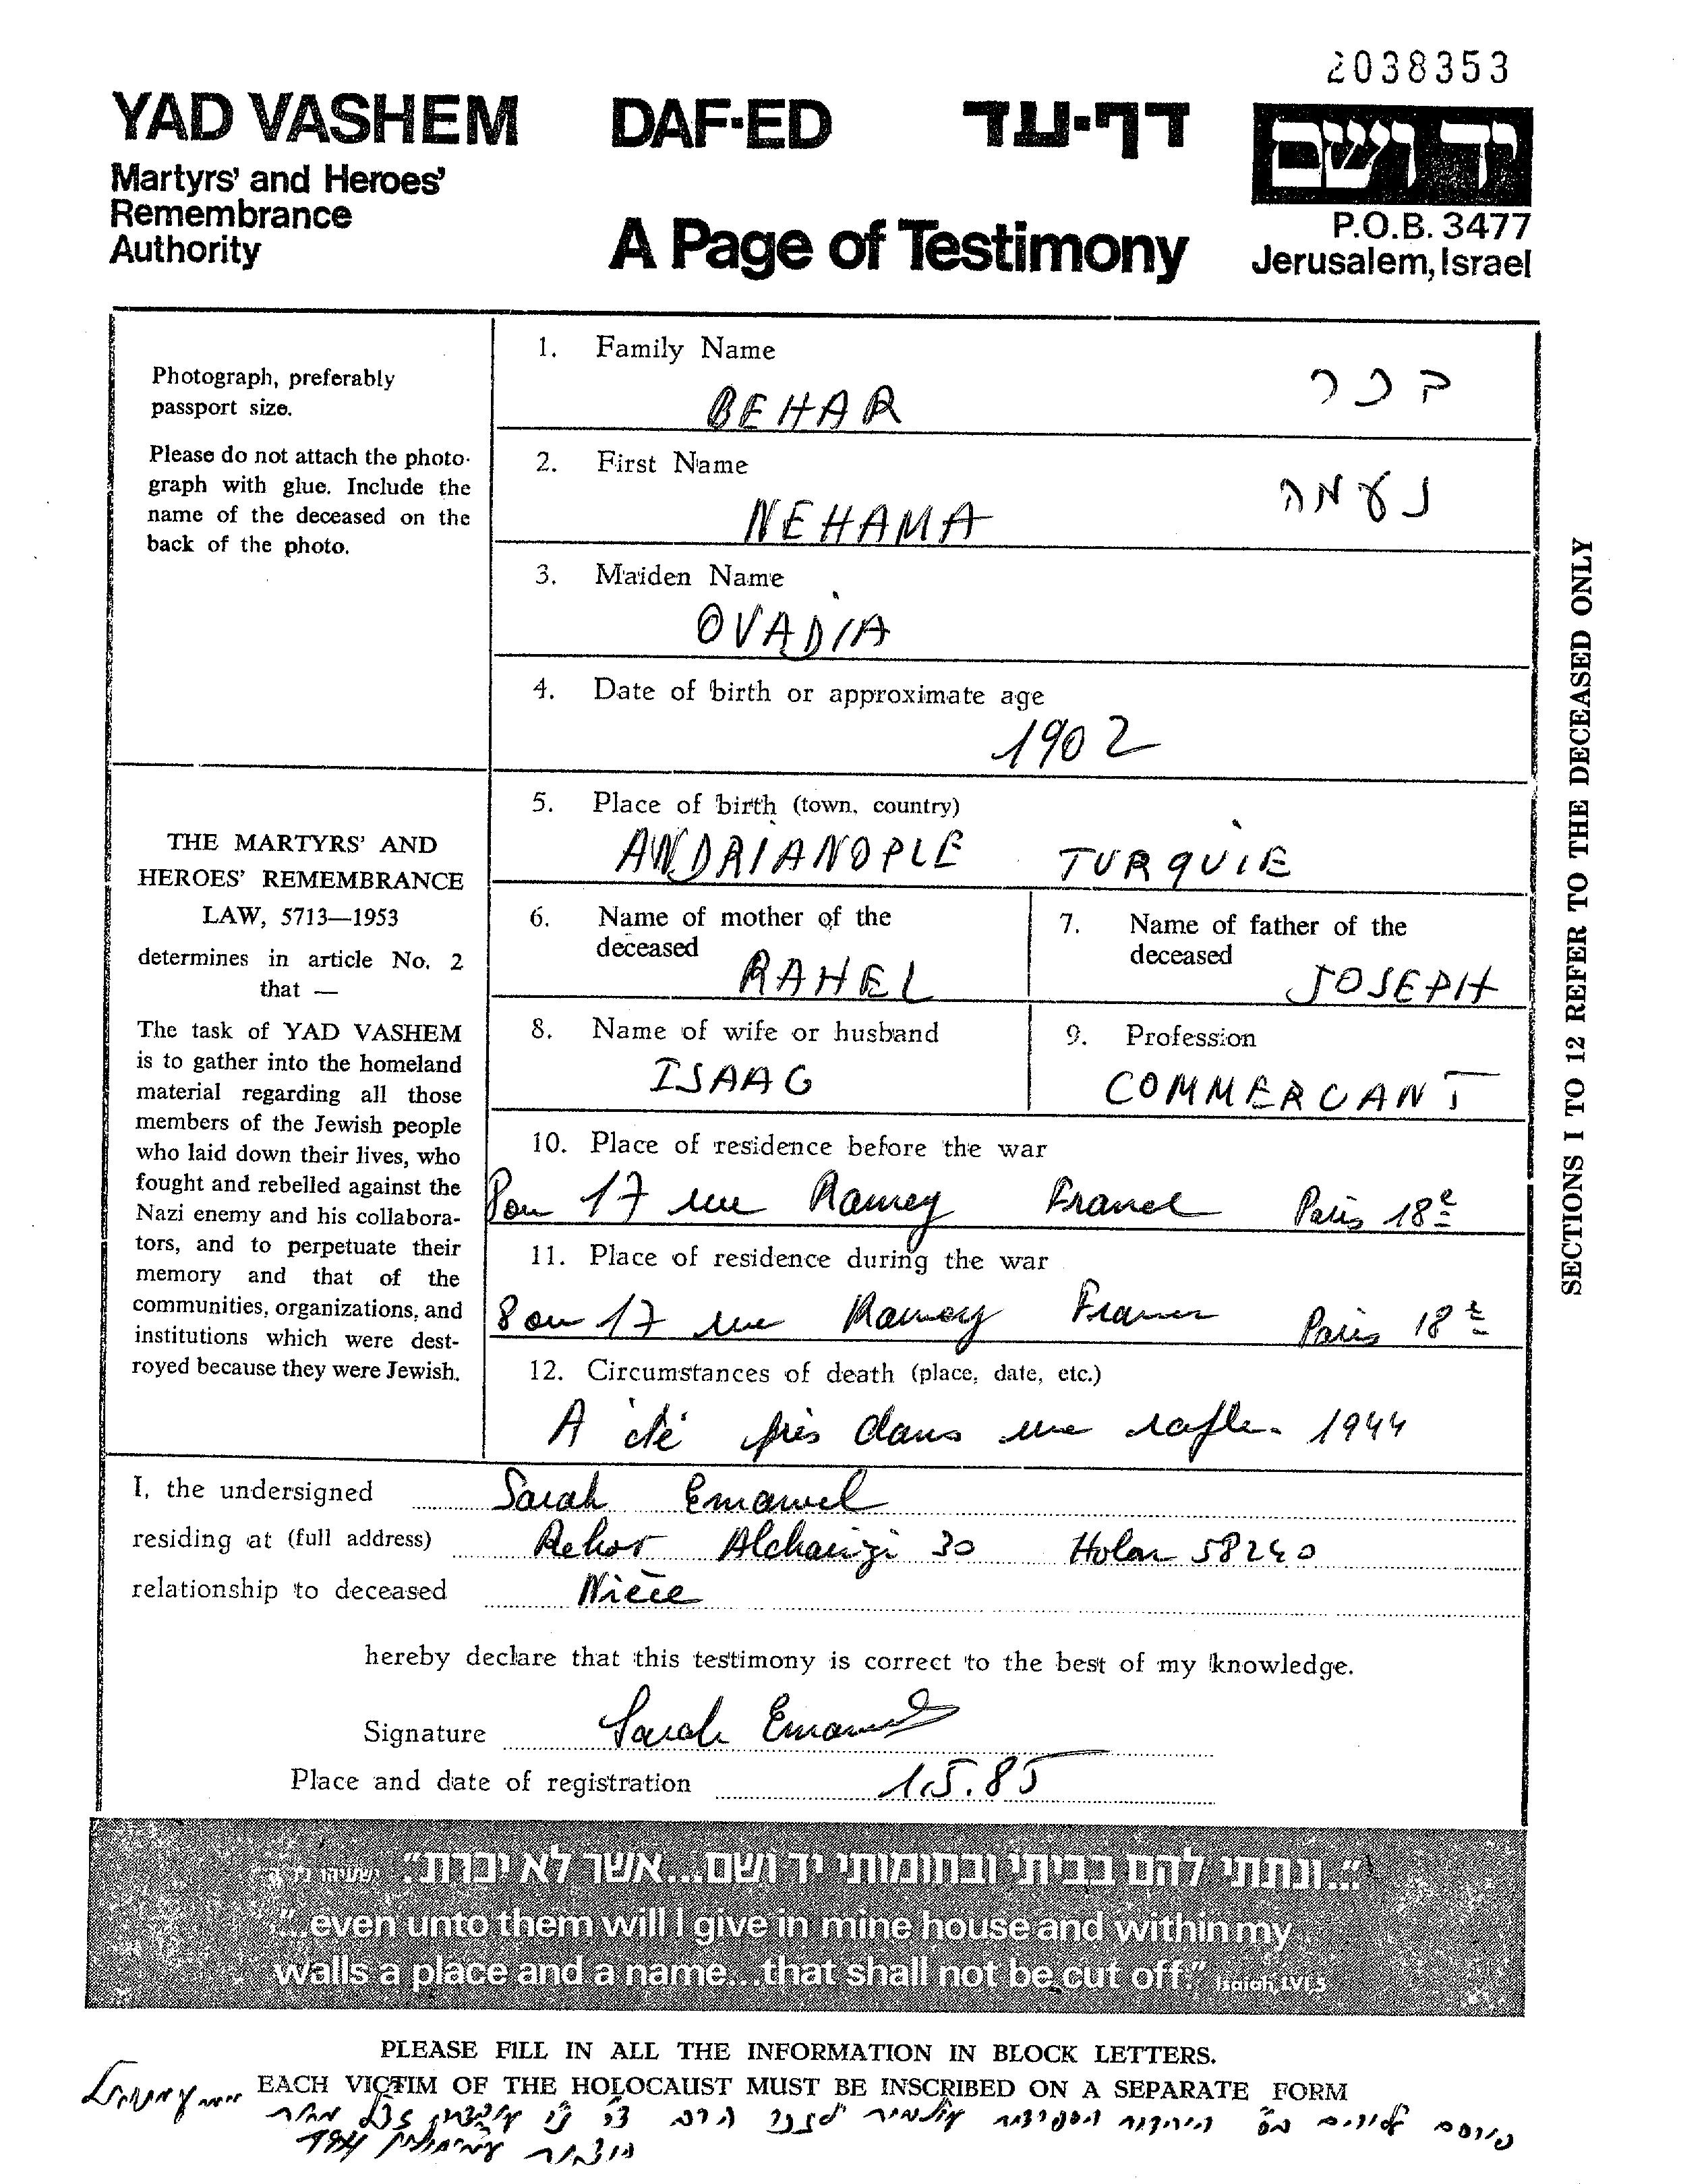 2038353
YAD VASHEM DAF-ED דף-עד יד ושם
Martyrs' and Heroes'
Remembrance
Authority
A Page of Testimony
P.O.B. 3477
Jerusalem, Israel
Photograph, preferably
passport size.
Please do not attach the photo-
graph with glue. Include the
name of the deceased on the
back of the photo.
THE MARTYRS' AND
HEROES' REMEMBRANCE
LAW, 5713—1953
determines in article No. 2
that —
The task of YAD VASHEM
is to gather into the homeland
material regarding all those
members of the Jewish people
who laid down their lives, who
fought and rebelled against the
Nazi enemy and his collabora-
tors, and to perpetuate their
memory and that of the
communities, organizations, and
institutions which were dest-
royed because they were Jewish.
1. Family Name
BEHAR בכר
2. First Name
NEHAMA נעמה
3. Maiden Name
OVADIA
4. Date of birth or approximate age
1902
5. Place of birth (town, country)
ANDRIANOPLE TURQUIE
6. Name of mother of the
deceased
RAHEL
7. Name of father of the
deceased
JOSEPH
8. Name of wife or husband
ISAAG
9. Profession
COMMERCANT
10. Place of residence before the war
8 ou 17 rue Ramey France Paris 18e
11. Place of residence during the war
8 ou 17 rue Ramey France Paris 18e
12. Circumstances of death (place, date, etc.)
A été pris dans une rafle. 1944
SECTIONS 1 TO 12 REFER TO THE DECEASED ONLY
I, the undersigned Sarah Emanuel
residing at (full address) Rehov Alcharizi 30 Holon 58240
relationship to deceased Nièce
hereby declare that this testimony is correct to the best of my knowledge.
Signature Sarah Emanuel
Place and date of registration 1.5.85
"...ונתתי להם בביתי ובחומותי יד ושם...אשר לא יכרת" ישעיהו נו ה
"...even unto them will I give in mine house and within my
walls a place and a name...that shall not be cut off." Isaiah, LVI,5
PLEASE FILL IN ALL THE INFORMATION IN BLOCK LETTERS.
EACH VICTIM OF THE HOLOCAUST MUST BE INSCRIBED ON A SEPARATE FORM